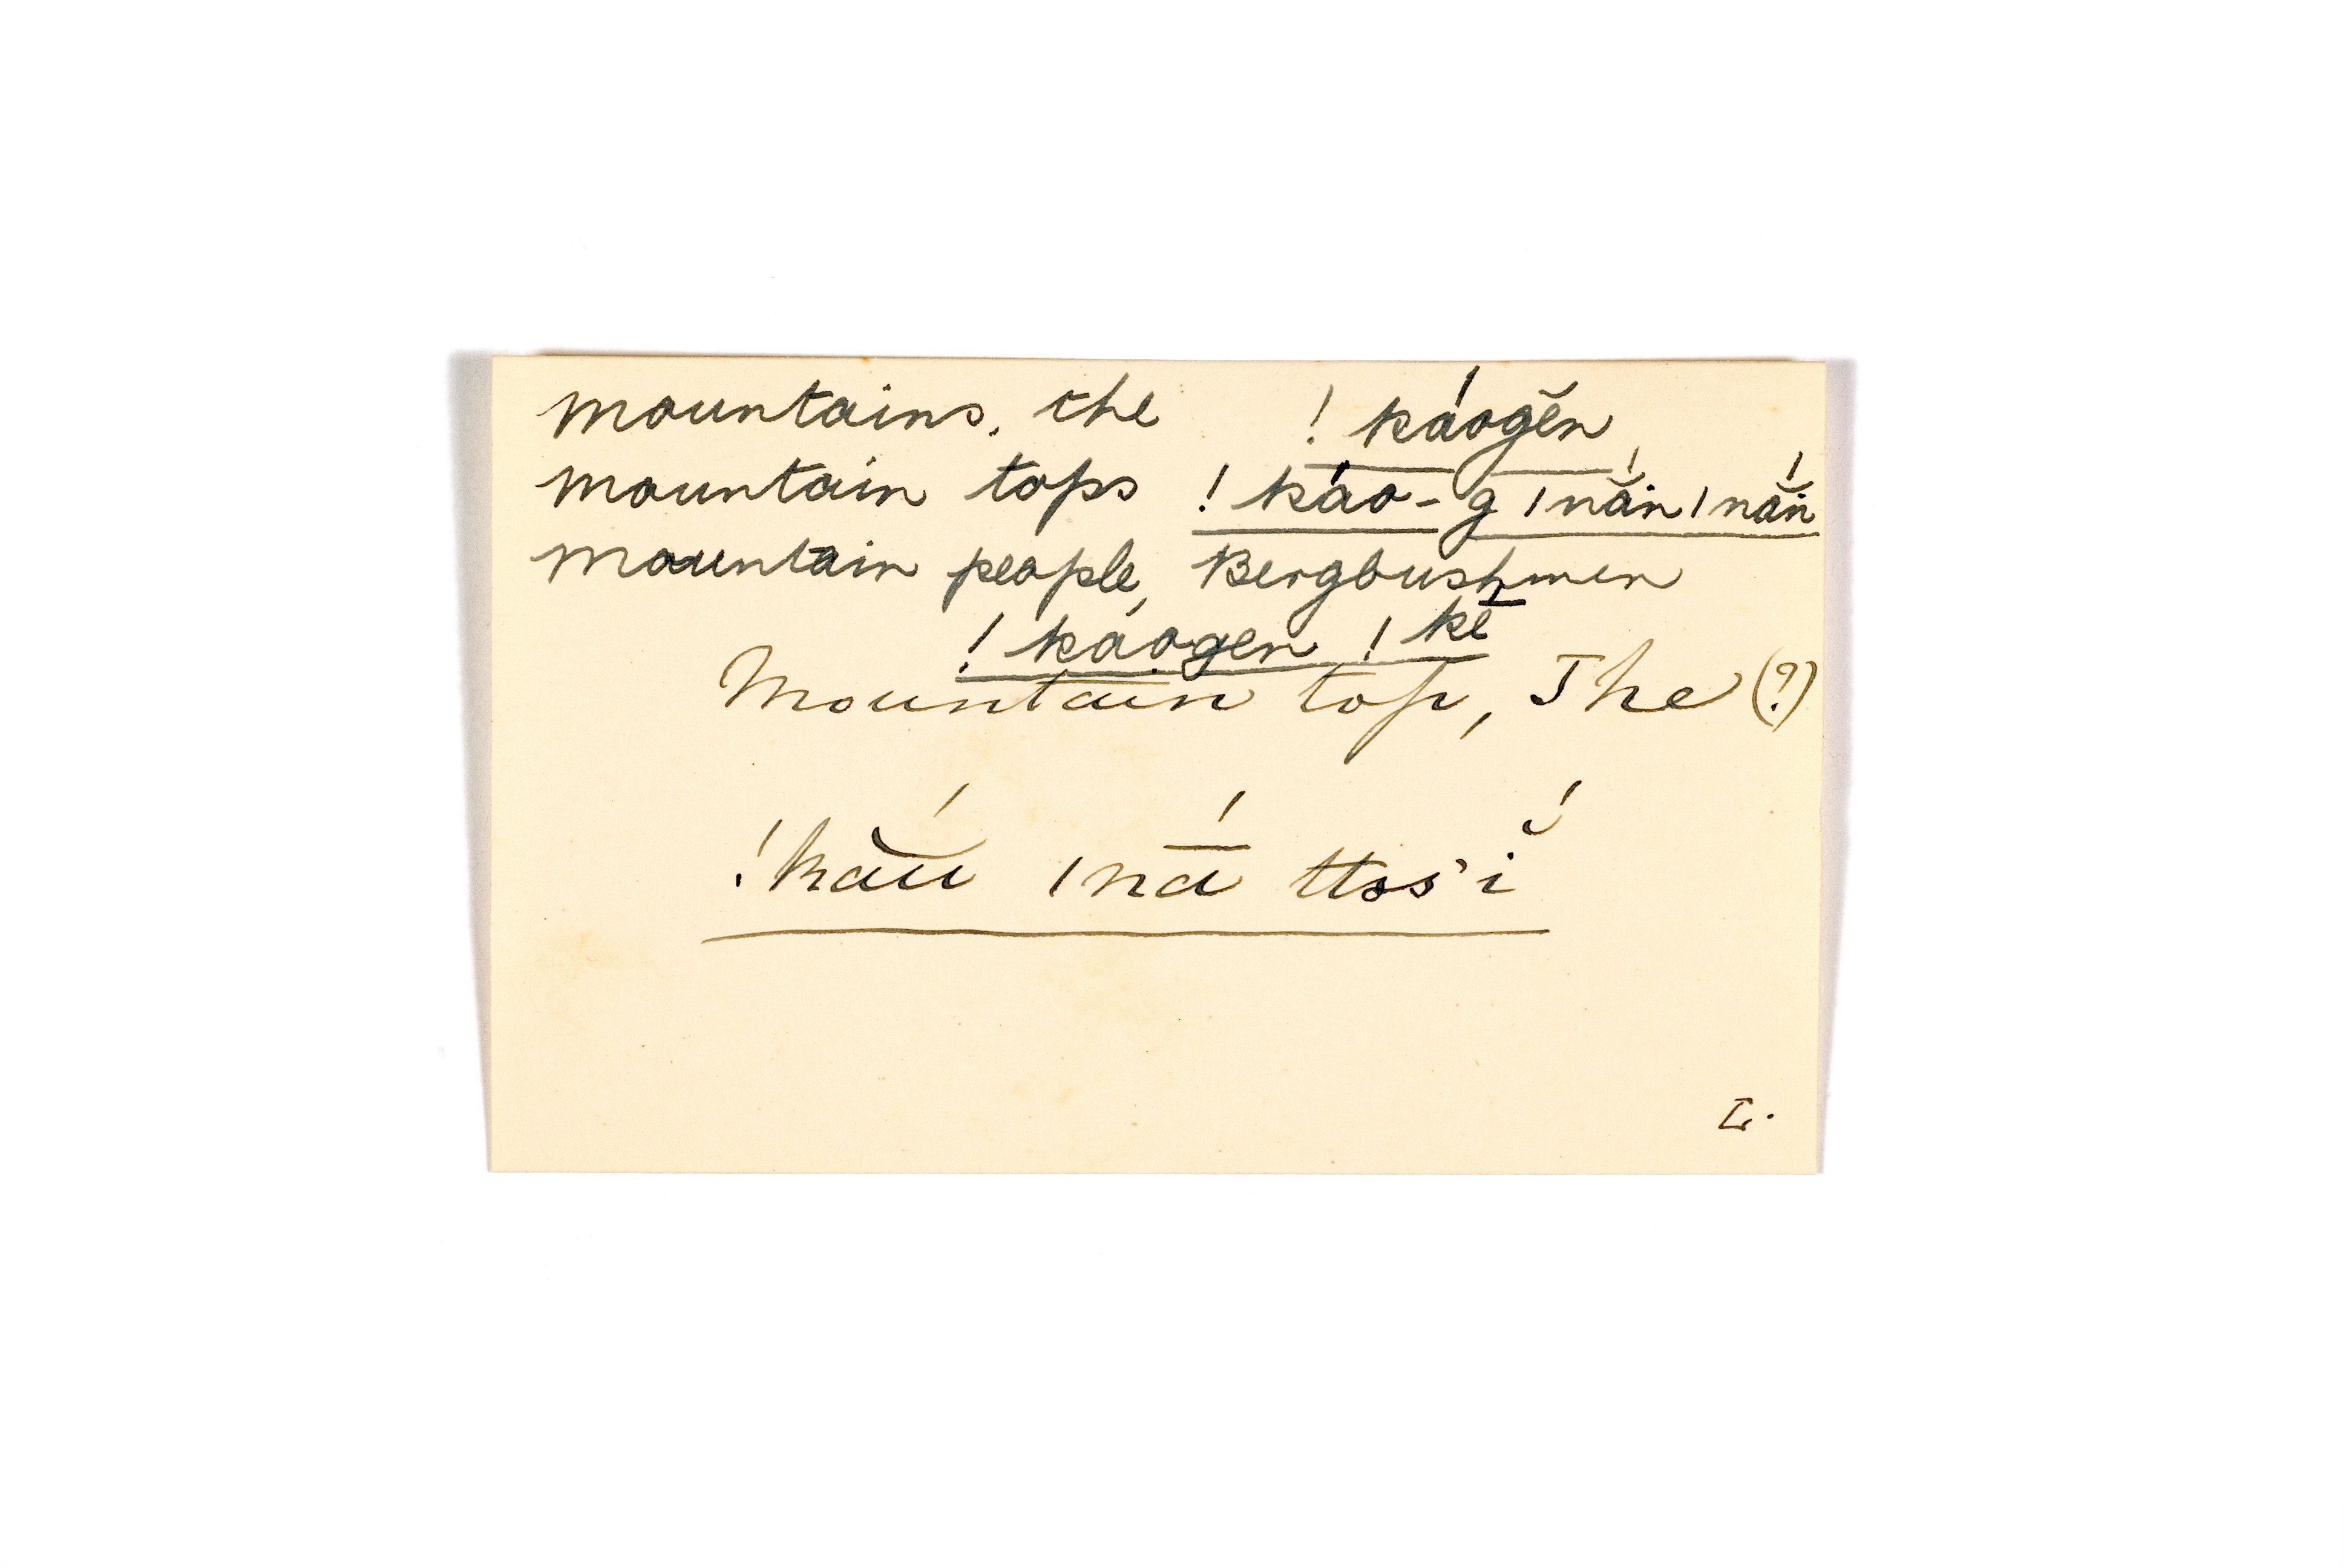 mountains, the ! káogĕn
mountain tops ! káo-g ǀnắn ǀnắn
mountain people, Bergbushmen
! káogen ! kē
Mountain top, The (?)
!kăú ǀnā́ ttss'ĭ́
L.